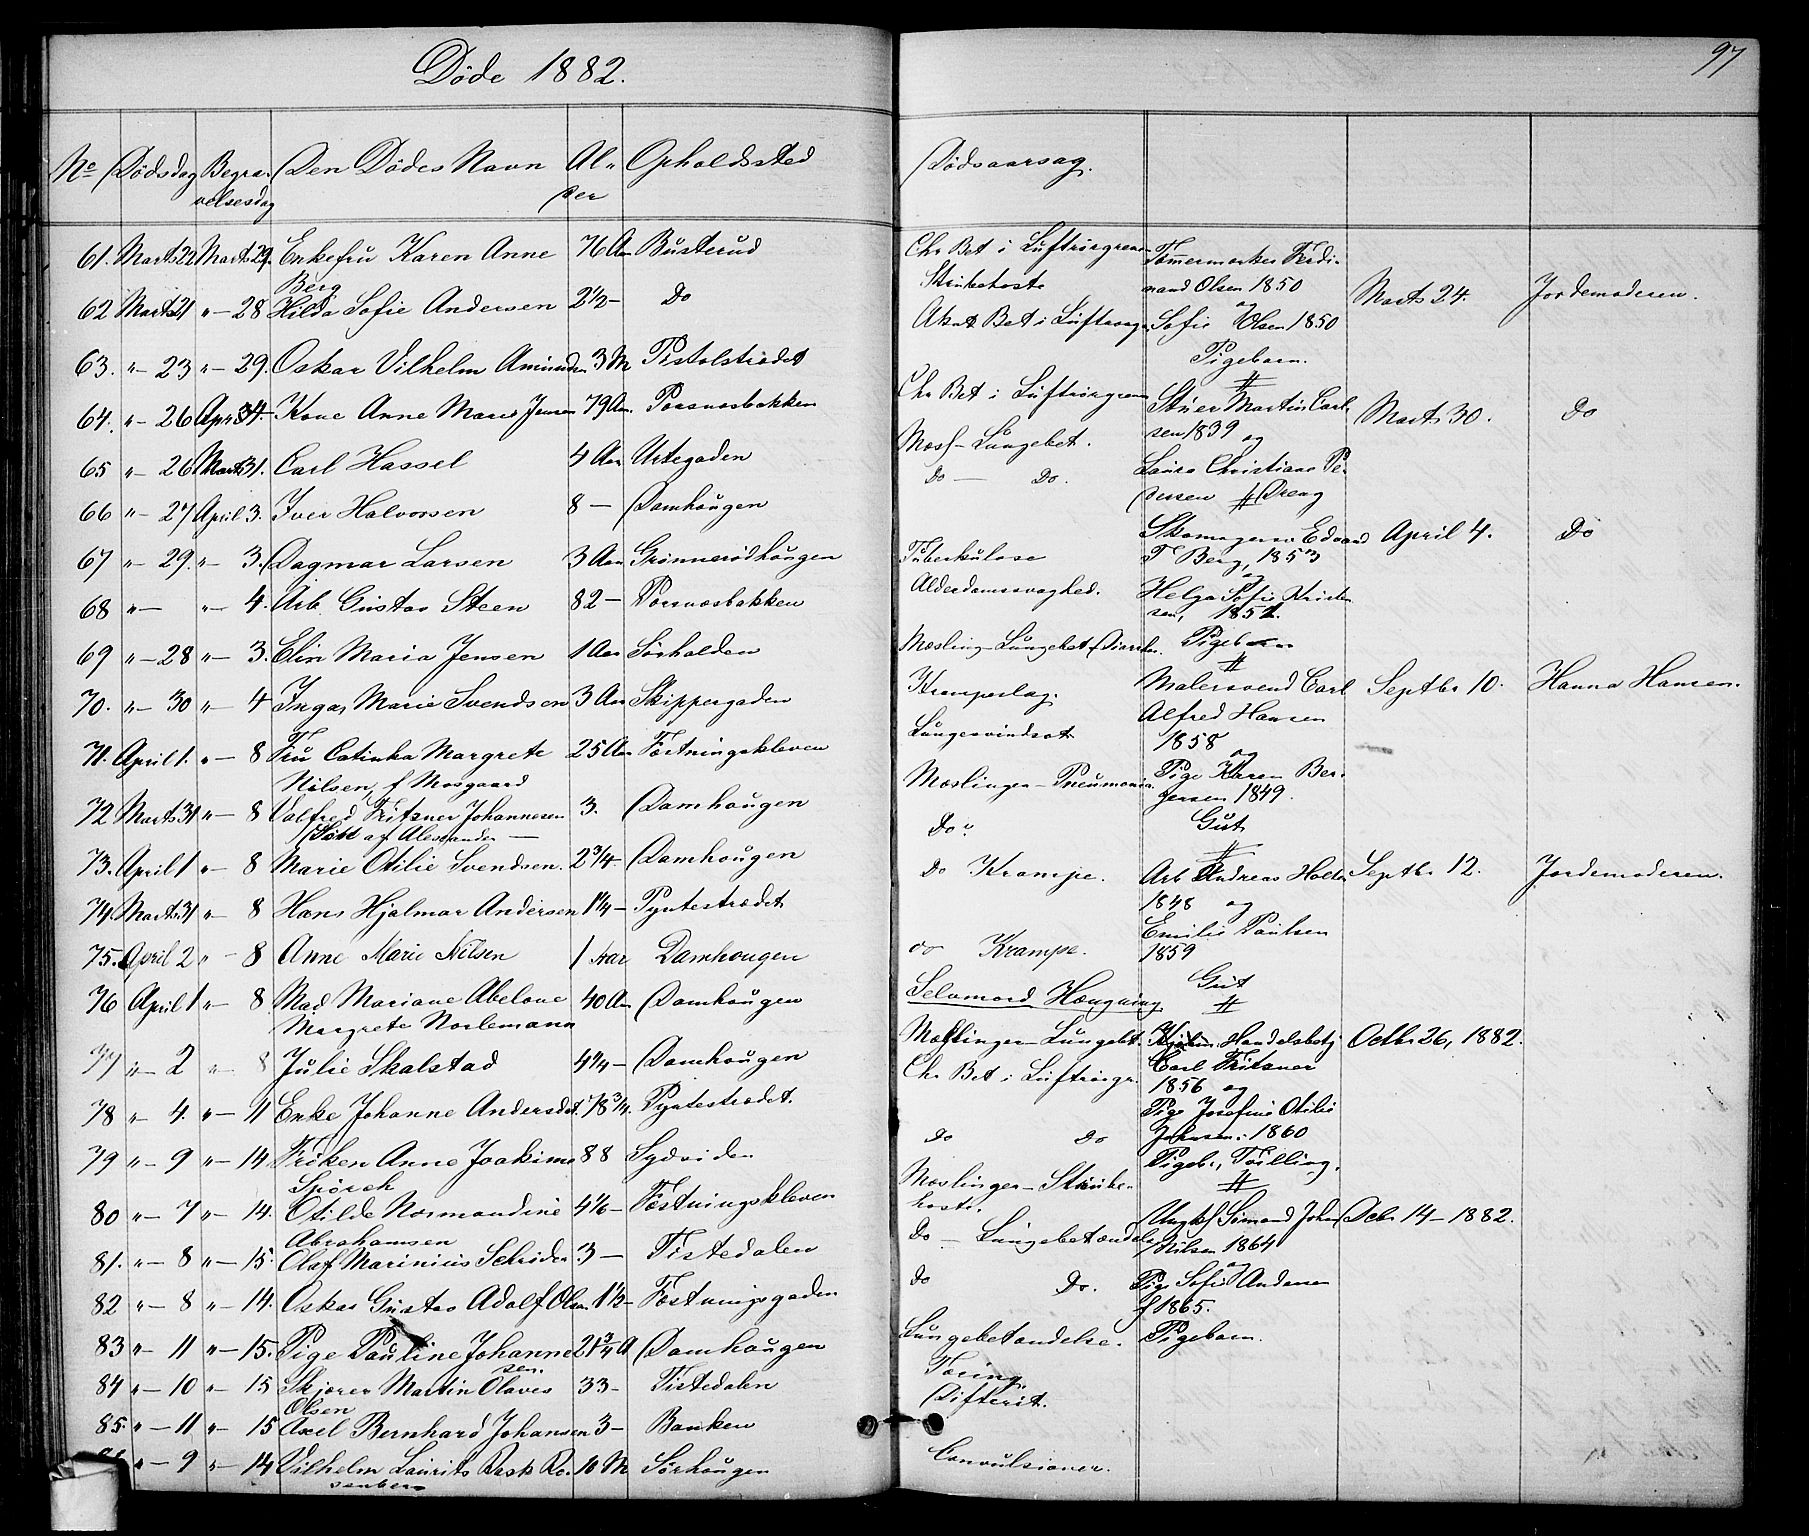 Døde 1882.
97
No Dødsdag Begra- Den Dødes Navn Al- Opholdssted Dødsaarsag.
velsesdag der
61. Marts 22 Marts 29. Enkefru Karen Anne 76 Aar Busterud
Berg
62 Marts 21 " - 28 Hilda Sofie Andersen 2 1/2 - Do
63. " - 23 " - 29. Oskar Vilhelm 3 M Pistolstrædet
64. " - 26 April 4. Kone Anne Marie Jensen 79 Aar Porsnæsbakken
65 " - 26 Marts 31. Carl Hassel 4 Aar Urtegaden
66 " - 27 April 3. Iver Halvorsen 8 - Damhaugen
67 " - 29. " - 3. Dagmar Larsen 3 Aar Grønnerødhaugen
68 " - " - 4. Arb. Gustav Steen 82 - Porsnæsbakken
69 " - 28 " - 3. Elin Maria Jensen 1 Aar Sørhalden
70. " - 30 " - 4 Inga Marie Svendsen 3 Aar Skippergaden
71. April 1. " - 8 Fru Catinka Margrete 25 Aar Fæstningskleven
Nilsen, f Mosgaard
72 Marts 31 " - 8 Valfred Fritzner Johannesen 3. Damhaugen
73. April 1 " - 8 Marie Otilie Svendsen. 2 3/4. Damhaugen
74. Marts 31 " - 8 Hans Hjalmar Andersen 1 1/4 - Pyntestrædet
75. April 2 " - 8 Anne Marie Nilsen 1 Aar Damhougen
76 April 1 " - 8 Mad Mariane Abelone 40 Aar Damhaugen
Margrete Norlemann
77 " - 2 " - 8 Julie Skalstad 4 1/4 - Damhaugen
78 " - 4. " - 11 Enke Johanne Andersdt. 78 3/4. Pyntestrædet.
79 " - 9 " - 14 Frøken Anne Joakime 88 Sydsiden
Spørck
80 " - 7 " - 14. Otilde Normandine 4 1/6 - Fæstningskleven
Abrahamsen
81. " - 8 " - 15. Olaf Marinius Schrøder 3 - Tistedalen
82 " - 8 " - 14. Oskar Gustav Adolf Olsen 1 1/2 - Fæstningsgaden
83 " - 11 " - 15. Pige Pauline Johanne- 21 3/4 A Damhaugen
sen.
84 " - 10 " - 15 Skjærer Martin Olaves 33 - Tistedalen
Olsen
85. " - 11 " - 15 Axel Bernhard Johansen 3 - Banken
" - 9 " - 14 Vilhelm Laurits Rask Ro- 10 M Sørhaugen
senberg
Chr Bet i Luftrørgrenene
Strubehoste
Akut Bet i Luftrørgr
Chr Bet i Luftrørgrene
Mæsl- Lungebet.
Do - Do.
Tuberkulose
Alderdomssvaghed.
Mæsling- Lungebet Diarrhe.
Krampeslag.
Lungesvindsot
Mæslinger- Pneumonia
Do "
Do Krampe.
do Krampe.
Selvmord Hængning
Mæslinger- Lungebt.
Chr Bet i Luftrørgr.
Do Do
Mæslinger- Strube-
hoste.
Do - Lungebetændelse
Do Do.
Lungebetændelse.
Tæring.
Difterit.
Convulsioner.
Tømmermerker Ferdi-
nand Olsen 1850
og
Sofie Olsen 1850 Marts 24. Jordemoderen.
Pigebarn.
#
Stuer Martin Carl-
sen 1839 Marts 30. Do
og
Laura Christiane Pe-
dersen # Dreng
Skomagersv. Edvard April 4. Do
T Berg, 1853
og
Helga Sofie Krist
sen, 1852.
Pigebarn
#
Malersvend Carl Septbr 10. Hanna Hansen.
Alfred Hansen
1858
og
Pige Karen Ber-
gersen 1849.
Gut
#
Arb Andreas Holter Septbr 12. Jordemoderen.
1848 og
Emilie Paulsen
1859
Gut
#
Handelsbetj Octbr 26, 1882.
Carl Fritzner
1856 og
Pige Josefine Otilie
Johnsen. 1860
Pigeb., Tvilling.
#
Ungk/ Sømand Johan Octbr 14 - 1882.
Nilsen 1864
og
Pige Sofie Andersen
f 1865.
Pigebarn.